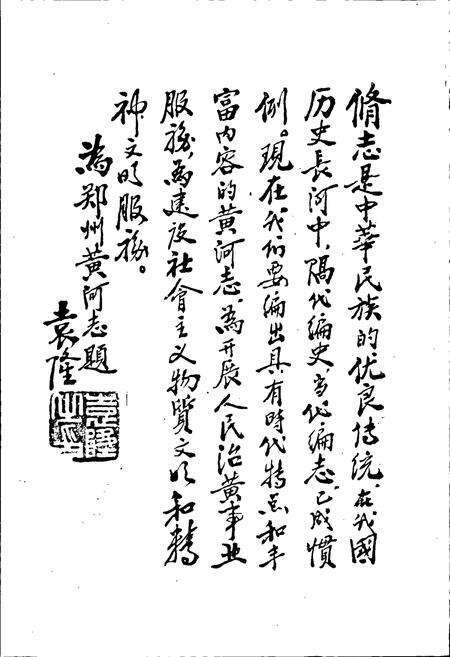 脩志是中華民族的优良传统，在我國
历史長河中，隔代编史，当代编志，已成慣
例。現在我们要编出具有時代特点和丰
富内容的黄河志，為开展人民治黄事业
服務，為建设社会主义物質文明和精
神文明服務。
為郑州黄河志題
袁隆